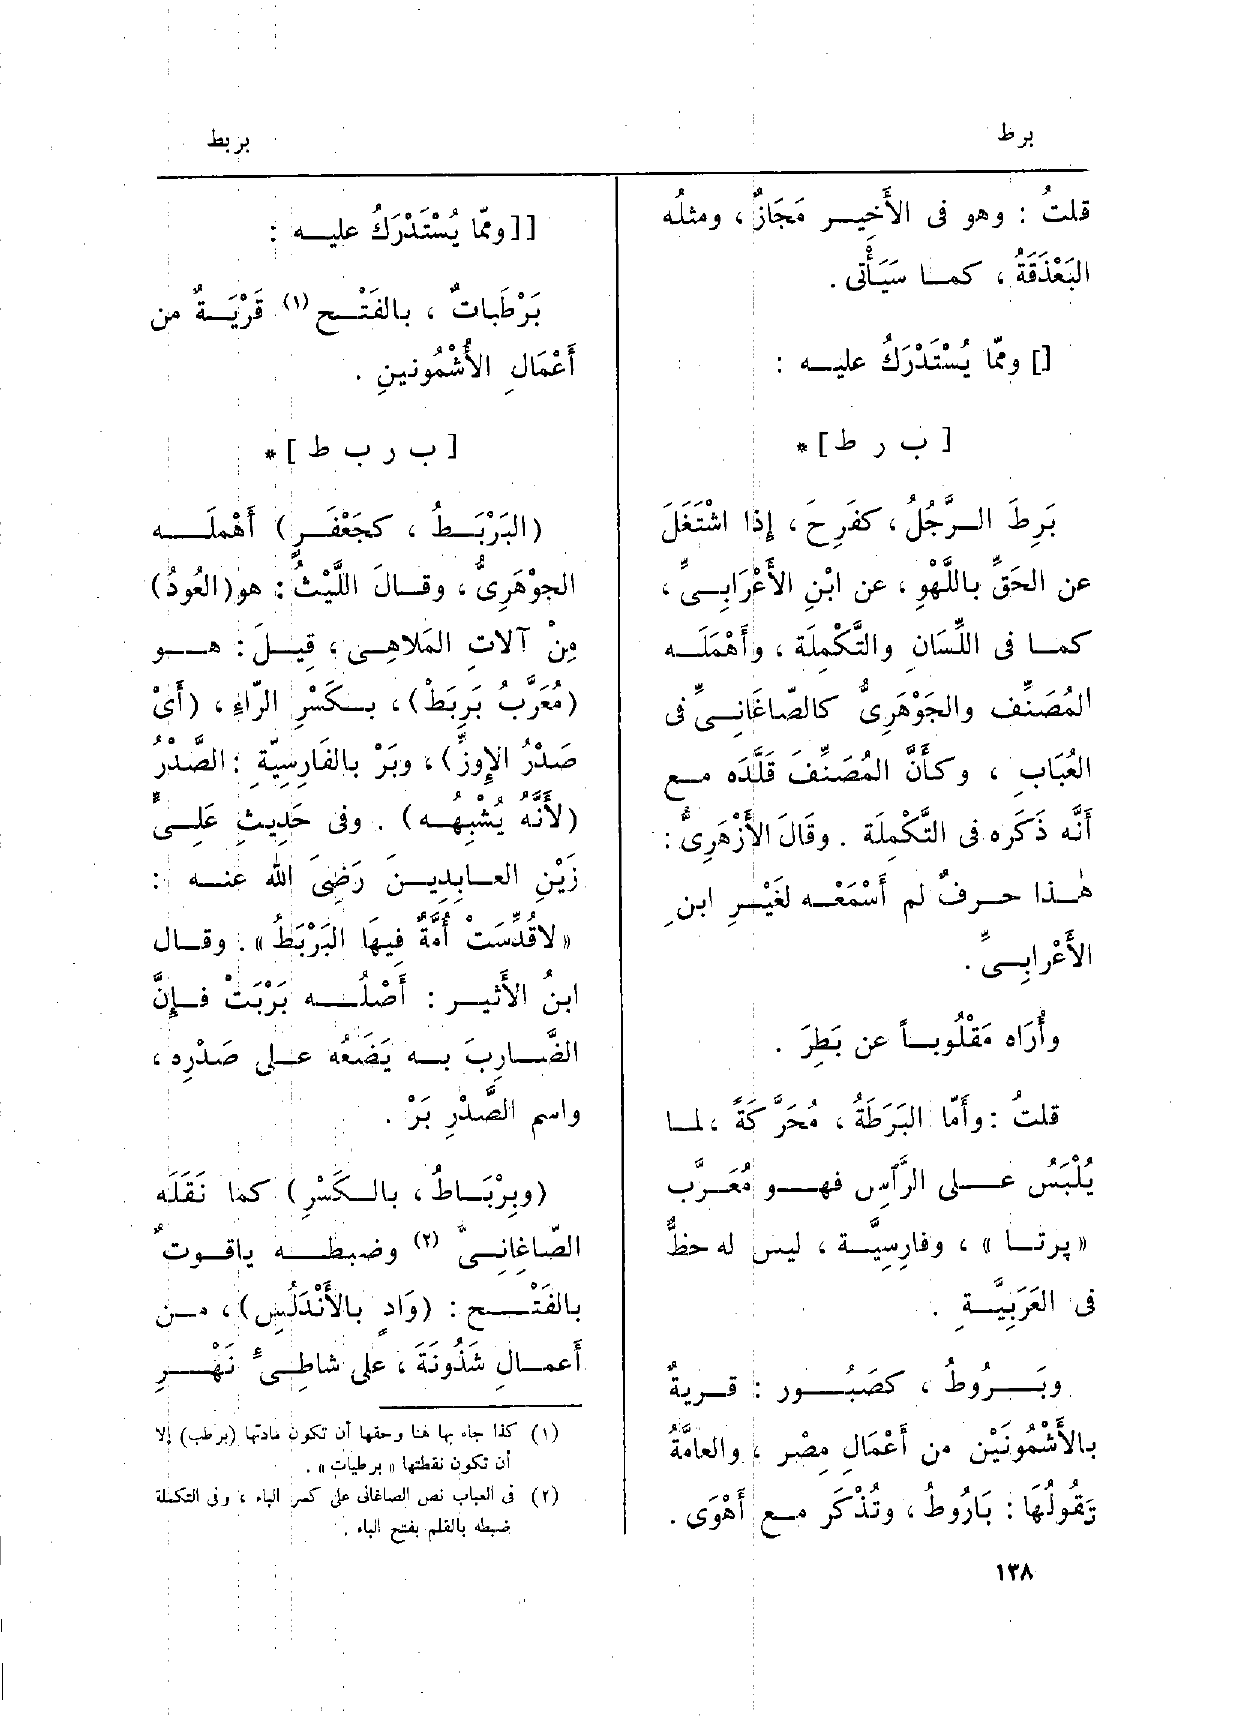 برط
بربط
قلتُ : وهو فى الأَخِيــر مَجَازٌ ، ومثلُه
البَعْذَقَةُ ، كمــا سَيَأْتى .
[] وممّا يُسْتَدْرَكُ عليــه :
[ ب ر ط ] *
بَرِطَ الــرَّجُلُ ، كفَرِحَ ، إِذا اشْتَغَلَ
عن الحَقِّ باللَّهْوِ ، عن ابْنِ الأَعْرَابِــىِّ ،
كمــا فى اللِّسَانِ والتَّكْمِلَة ، وأَهْمَلَــه
المُصَنِّف والجَوْهَرِىُّ كالصّاغَانِــىِّ فى
العُبَابِ ، وكأَنَّ المُصَنِّفَ قَلَّدَه مــع
أَنَّه ذَكَره فى التَّكْمِلَة . وقَالَ الأَزْهَرِىُّ :
هٰــذا حــرفٌ لم أَسْمَعْــه لغَيْــرِ ابن
الأَعْرابِــىِّ .
وأُرَاه مَقْلُوبــاً عن بَطِرَ .
قلتُ : وأَمّا البَرَطَةُ ، مُحَرَّكَةً ، لمــا
يُلْبَسُ عــلى الرَّأْسِ فهــو مُعَــرَّب
« پرتــا » ، وفارسِيَّــة ، ليس له حظٌّ
فى العَرَبِيَّــةِ .
وبَــرُوطُ ، كصَبُــور : قــريةٌ
بالأُشْمُونَيْن من أَعْمَالِ مِصْر ، والعامَّةُ
تَقُولُهَا : بَارُوطُ ، وتُذْكَر مــع أَهْوَى .
[[ وممّا يُسْتَدْرَكُ عليــه :
بَرْطَباتٌ ، بالفَتْــح (١) قَرْيَــةٌ من
أَعْمَالِ الأُشْمُونينِ .
[ ب ر ب ط ] *
(البَرْبَــطُ ، كجَعْفَــر) أَهْمَلَــه
الجوْهَرِىُّ ، وقــالَ اللَّيْثُ : هو (العُودُ)
مِنْ آلاتِ المَلاهِــى ، قِيــلَ : هــو
(مُعَرَّبُ بَرِبَطْ) ، بــكَسْرِ الرّاءِ ، (أَىْ
صَدْرُ الإِوزِّ) ، وبَرْ بالفَارِسِيّةِ : الصَّدْرُ
(لأَنَّهُ يُشْبِهُــه) . وفى حَدِيثِ عَلِــىٍّ
زَيْنِ العــابِدِيــنَ رَضِىَ الله عنــه :
« لاقُدِّسَت أُمَّةٌ فِيهَا البَرْبَطُ » . وقــال
ابنُ الأَثيــر : أَصْلُــه بَرْبَتْ فــإِنَّ
الضَّــارِبَ بــه يَضَعُه عــلى صَدْرِه ،
واسم الصَّدْرِ بَرْ .
(وبِرْبَــاطُ ، بالــكَسْرِ) كما نَقَلَه
الصّاغانِــىُّ (٢) وضبطــه ياقــوتٌ
بالفَتْــح : (وَادٍ بالأَنْدَلُسِ) ، مــن
أَعمــالِ شَذُونَةَ ، على شاطِــئِ نَهْــرِ
(١) كذا جاء بها هنا وحقها أن تكون مادتها (برطب) إلا
أن تكون نقطتها « برطيات » .
(٢) فى العباب نص الصاغانى على كسر الباء ، وفى التكملة
ضبطه بالقلم بفتح الباء .
١٣٨